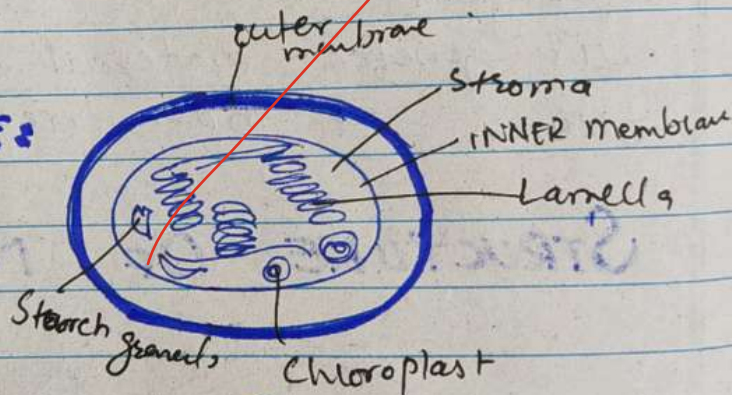 outer
membrane
Stroma
INNER membrane
Lamella
Starch
granuls
Chloroplast